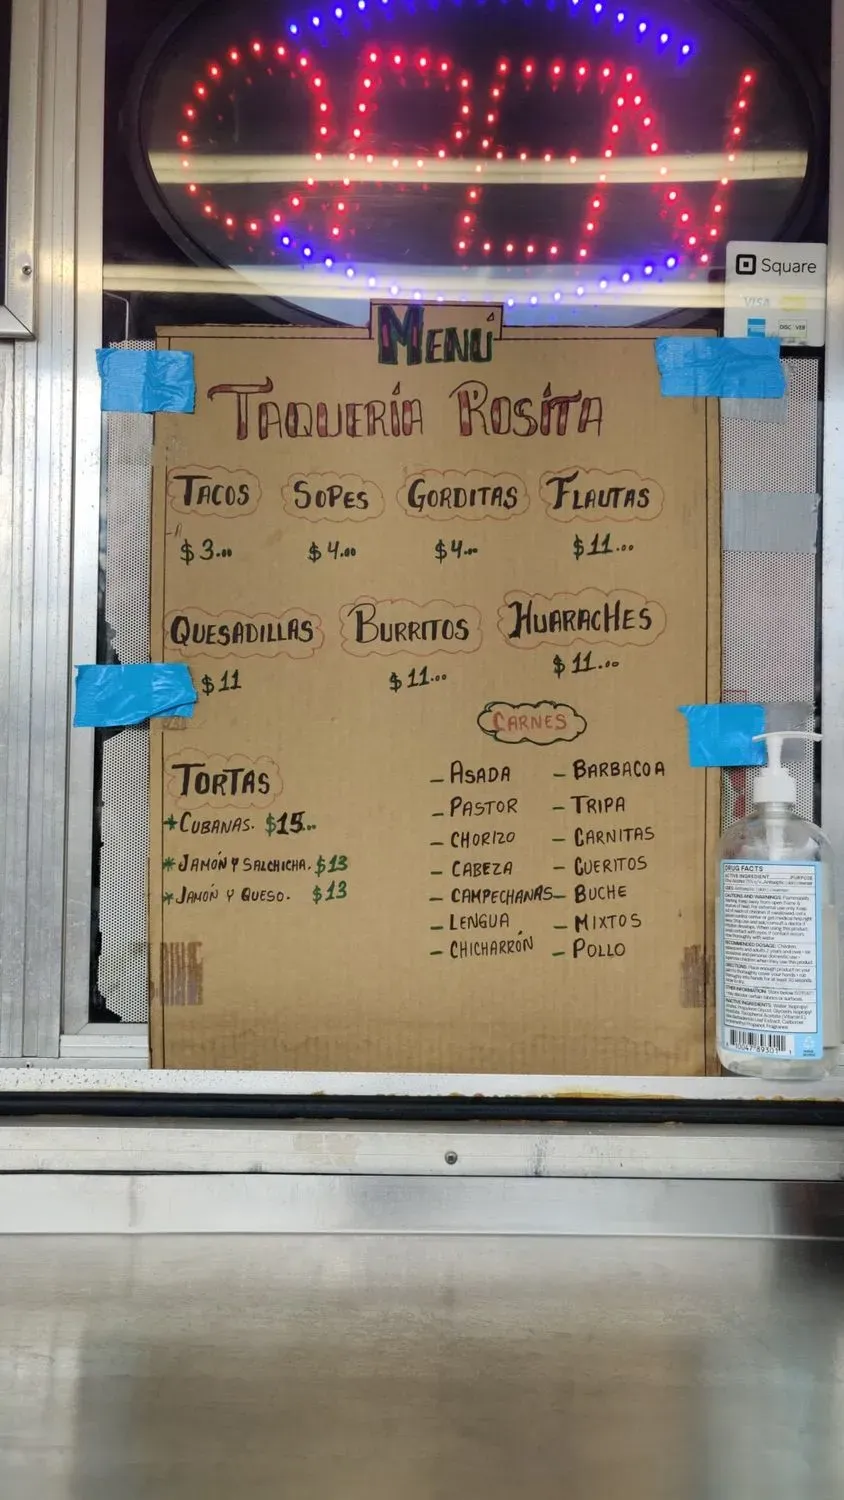 OPEN
Square
VISA
DISCOVER
MENÚ
TAQUERÍA ROSITA
TACOS SOPES GORDITAS FLAUTAS
$3.00 $4.00 $4.00 $11.00
QUESADILLAS BURRITOS HUARACHES
$11 $11.00 $11.00
CARNES
TORTAS
*CUBANAS. $15..
*JAMÓN Y SALCHICHA. $13
*JAMÓN Y QUESO. $13
- ASADA - BARBACOA
- PASTOR - TRIPA
- CHORIZO - CARNITAS
- CABEZA - CUERITOS
- CAMPECHANAS - BUCHE
- LENGUA - MIXTOS
- CHICHARRÓN - POLLO
DRUG FACTS
ACTIVE INGREDIENT PURPOSE